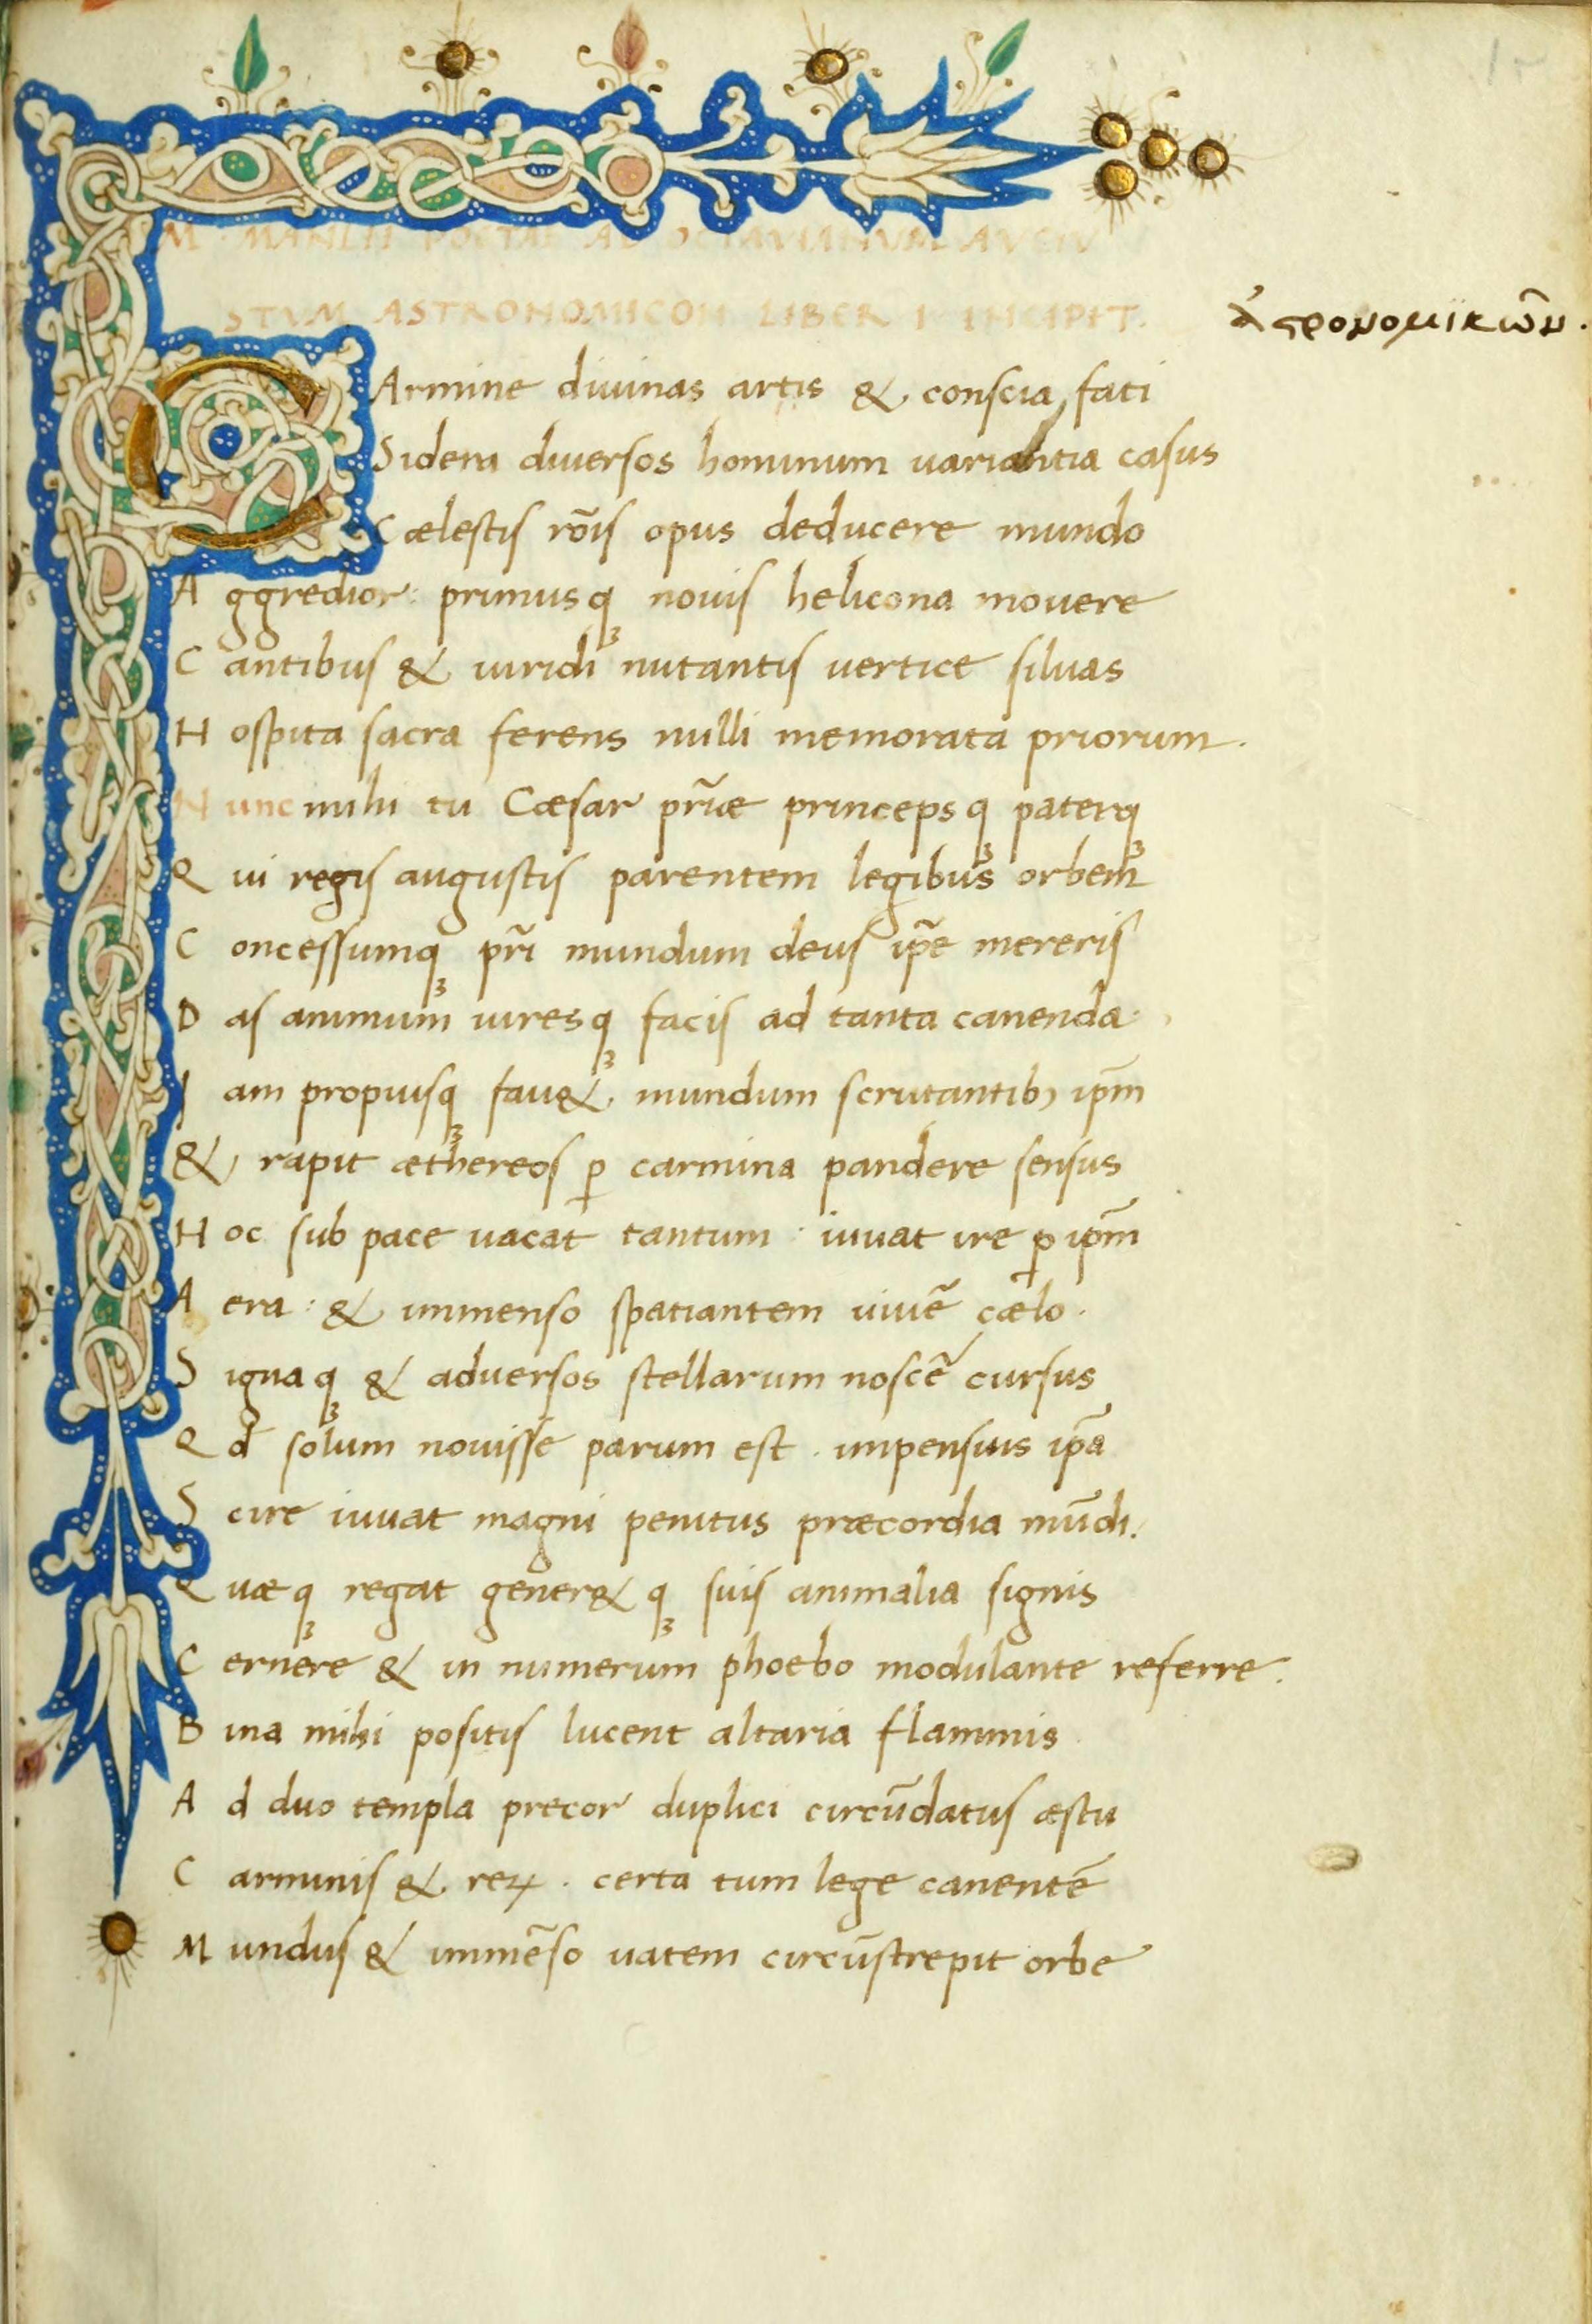 M. MANLII POETAE AD OCTAVIANVM AVGV
STVM ASTRONOMICON LIBER I INCIPIT.
ἀςρονομικῶν.
CArmine diuinas artis & conscia fati
Sidera diuersos hominum uariantia casus
Cælestis rōis opus deducere mundo
Aggredior: primusqꝫ nouis helicona mouere
Cantibus & uiridi nutantis uertice siluas
Hospita sacra ferens nulli memorata priorum.
Nunc mihi tu Cæsar pr̄iæ princepsqꝫ paterqꝫ
Qui regis augustis parentem legibus orbem
Concessumqꝫ pr̄i mundum deus ip̄e mereris
Das animum uiresqꝫ facis ad tanta canenda.
Iam propiusqꝫ fau& mundum scrutantibꝫ ip̄m
& rapit æthereos ꝑ carmina pandere sensus
Hoc sub pace uacat tantum . iuuat ire ꝑ ip̄m
Aera : & immenso spatiantem uiuē cælo.
Signaqꝫ & aduersos stellarum noscē cursus
Qd̄ solum nouisse parum est . impensius ip̄a
Scire iuuat magni penitus præcordia mūdi.
Quæqꝫ regat gener&qꝫ suis animalia signis
Cernere & in numerum phoebo modulante referre.
Bina mihi positis lucent altaria flammis
Ad duo templa precor duplici circūdatus æstu
Carminis & reꝝ . certa tum lege canentē
Mundus & immēso uatem circūstrepit orbe